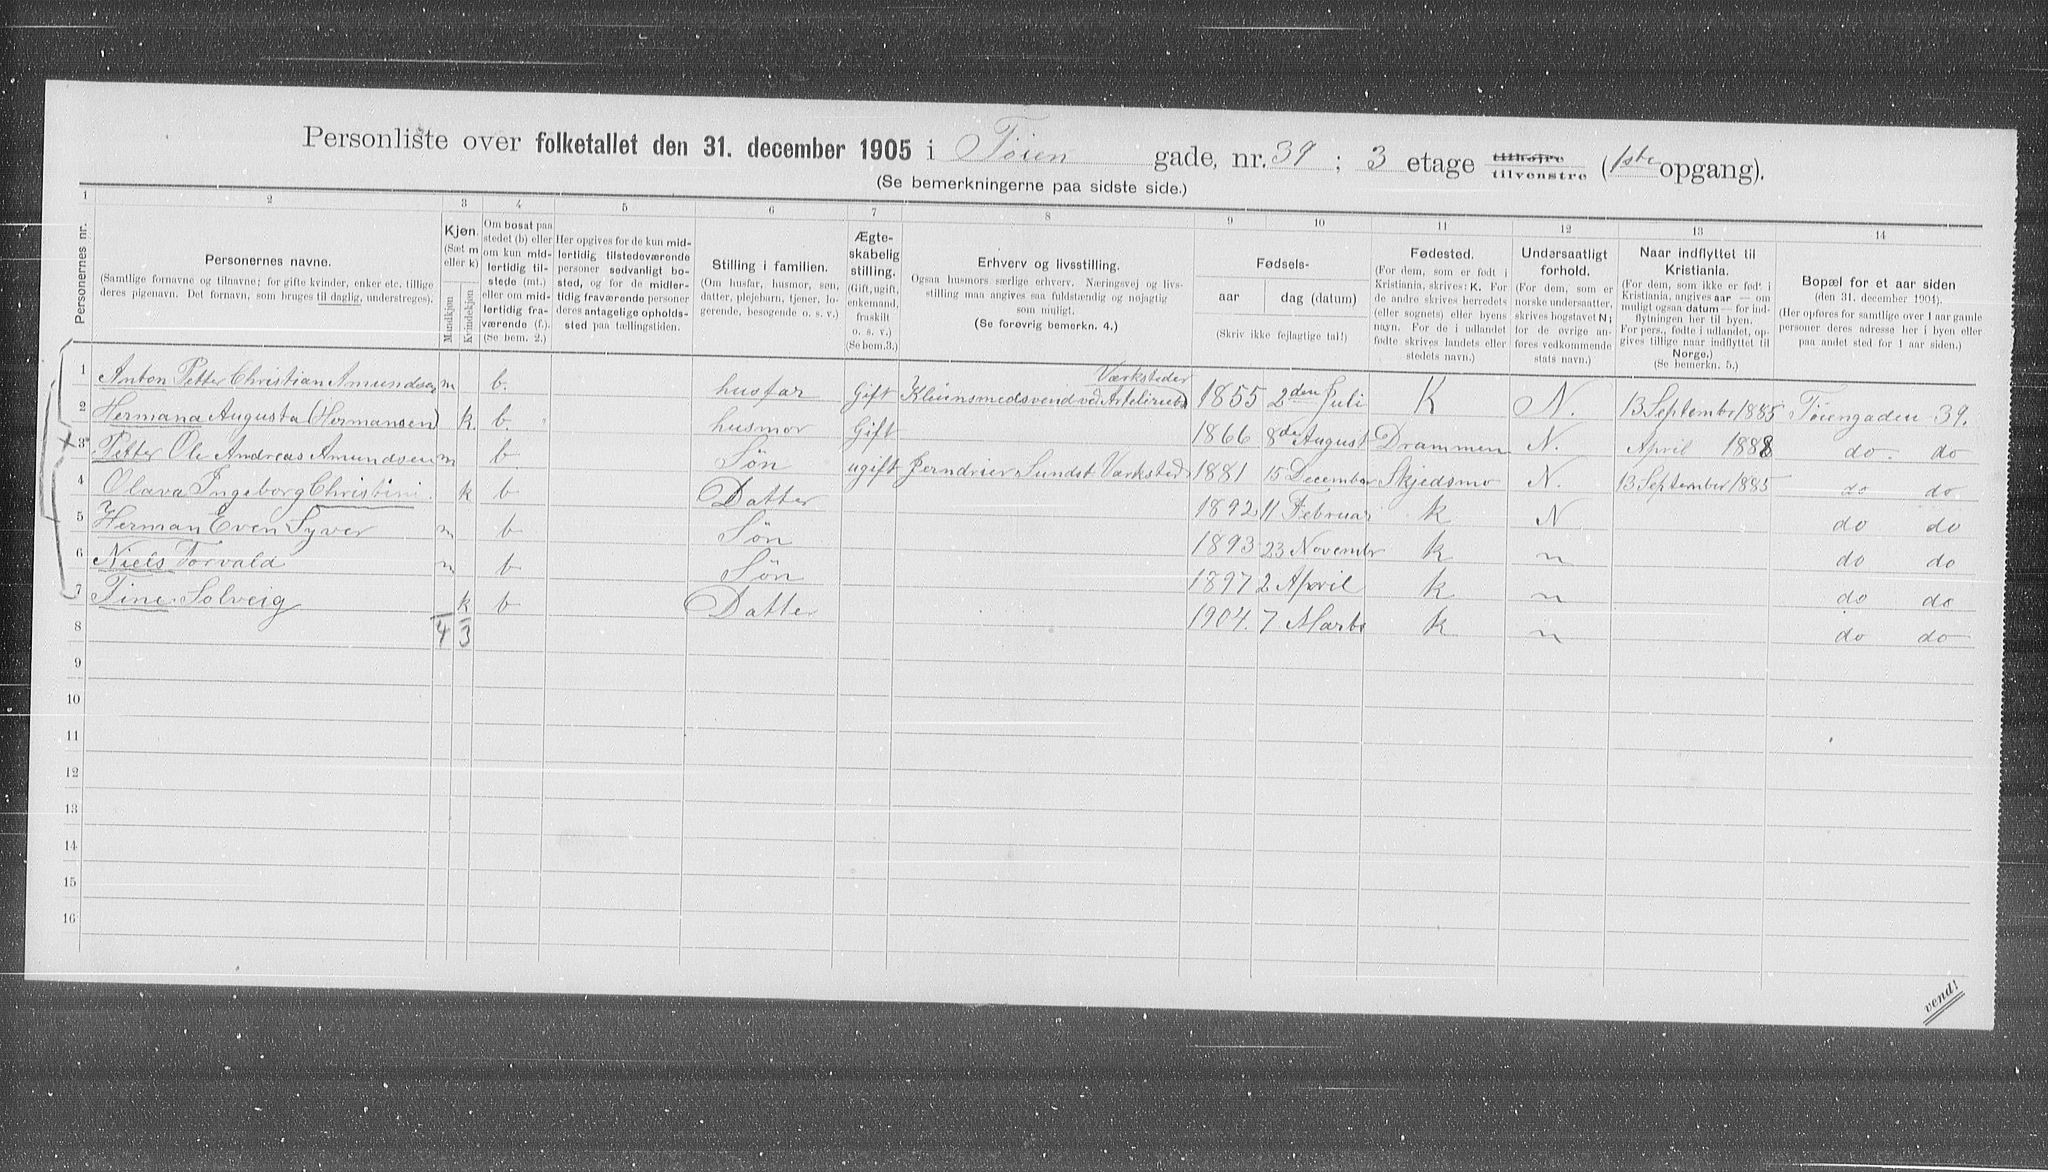 Personliste over folketallet den 31. december 1905 i Tøien gade, nr. 39 ; 3 etage tilhøjre tilvenstre (1ste opgang).
(Se bemerkningerne paa sidste side.)
1 2 3 4 5 6 7 8 9 10 11 12 13 14
Personernes nr.
Personernes navne.
(Samtlige fornavne og tilnavne; for gifte kvinder, enker etc. tillige
deres pigenavn. Det fornavn, som bruges til daglig, understreges).
Kjøn.
(Sæt m
eller k)
Mandkjøn
Kvindekjøn
Om bosat paa
stedet (b) eller
om kun mid-
lertidig til-
stede (mt.)
eller om mid-
lertidig fra-
værende (f.).
(Se bem. 2.)
Her opgives for de kun mid-
lertidig tilstedeværende
personer sedvanligt bo-
sted, og for de midler-
tidig fraværende personer
deres antagelige opholds-
sted paa tællingstiden.
Stilling i familien.
(Om husfar, husmor, søn,
datter, plejebarn, tjener, lo-
gerende, besøgende o. s. v.)
Ægte-
skabelig
stilling.
(Gift, ugift,
enkemand,
fraskilt
o. s. v.)
(Se bem.3.)
Erhverv og livsstilling.
Ogsaa husmors særlige erhverv. Næringsvej og livs-
stilling maa angives saa fuldstændig og nøjagtig
som muligt.
(Se forøvrig bemerkn. 4.)
Fødsels-
aar
dag (datum)
(Skriv ikke fejlagtige tal!)
Fødested.
(For dem, som er født i
Kristiania, skrives: K. For
de andre skrives herredets
(eller sognets) eller byens
navn. For de i udlandet
fødte skrives landets eller
stedets navn.)
Undersaatligt
forhold.
(For dem, som er
norske undersaatter,
skrives bogstavet N;
for de øvrige an-
føres vedkommende
stats navn.)
Naar indflyttet til
Kristiania.
(For dem, som ikke er født i
Kristiania, angives aar — om
muligt ogsaa datum — for ind-
flytningen her til byen.
For pers., fødte i udlandet, op-
gives tillige naar indflyttet til
Norge.)
(Se bemerkn. 5.)
Bopæl for et aar siden
(den 31. december 1904).
(Her opføres for samtlige over 1 aar gamle
personer deres adresse her i byen eller
paa andet sted for 1 aar siden.)
Værksteder
1 Anton Petter Christian Amundsen m b. husfar Gift Kleinsmedsvend ved 1855 2den Juli K N. 13 September 1885 Tøiengaden 39.
2 Hermana Augusta (Hermansen) k. b. husmor Gift 1866 8de August Drammen N. April 1888 do. do
3 Petter Ole Andreas Amundsen m b. Søn ugift Jerndrier Sundet Værksted 1881 15 December Skjedsmo N. 13 September 1885 do do.
4 Olava Ingeborg Christini. k b Datter 1892 11 Februar k N do do
5 Herman Even Syver m b Søn 1893 23 Novembr k n do do
6 Niels Torvald m b Søn 1897 2 April k n do do
7 Tine Solveig k b Datter 1904. 7 Marts k n do do
8 4 3
9
10
11
12
13
14
15
16
vend!